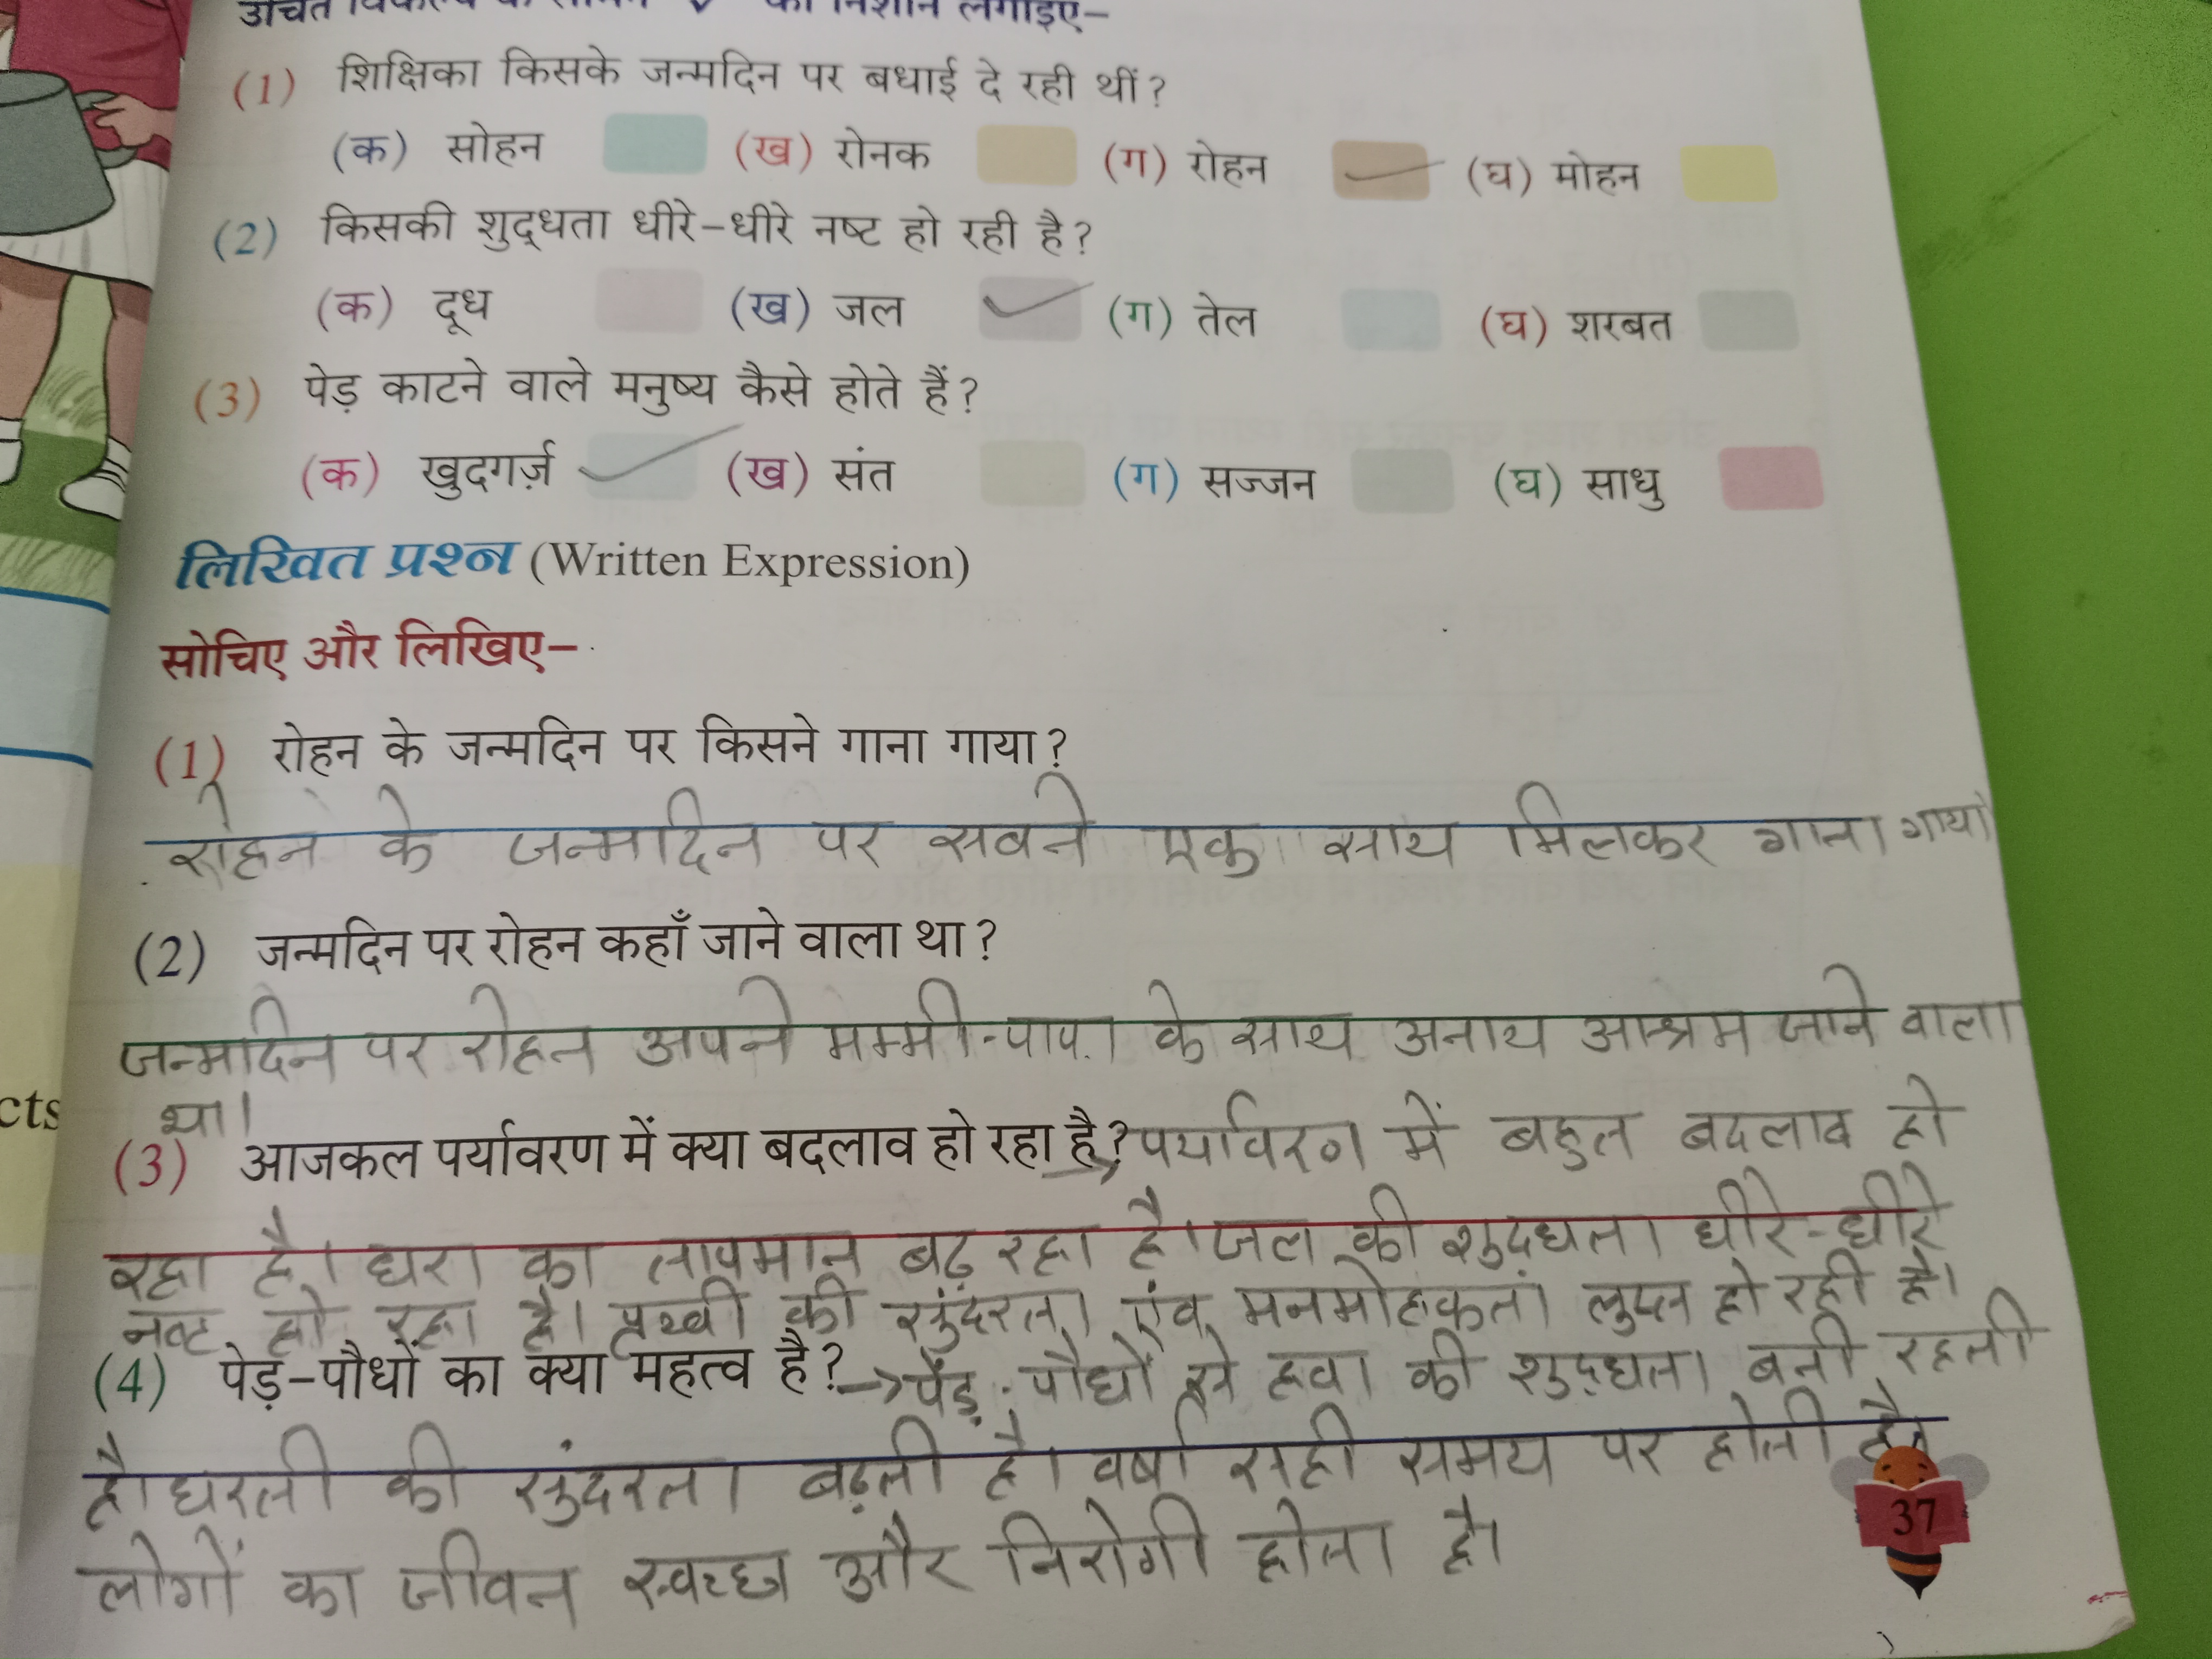 उचित विकल्प के सामने ✓ का निशान लगाइए–
(1) शिक्षिका किसके जन्मदिन पर बधाई दे रही थीं?
(क) सोहन (ख) रोनक (ग) रोहन ✓ (घ) मोहन
(2) किसकी शुद्धता धीरे-धीरे नष्ट हो रही है?
(क) दूध (ख) जल ✓ (ग) तेल (घ) शरबत
(3) पेड़ काटने वाले मनुष्य कैसे होते हैं?
(क) खुदगर्ज़ ✓ (ख) संत (ग) सज्जन (घ) साधु
लिखित प्रश्न (Written Expression)
सोचिए और लिखिए–
(1) रोहन के जन्मदिन पर किसने गाना गाया?
रोहन के जन्मदिन पर सबने एक साथ मिलकर गाना गाया
(2) जन्मदिन पर रोहन कहाँ जाने वाला था?
जन्मदिन पर रोहन अपने मम्मी-पापा के साथ अनाथ आश्रम जाने वाला
था।
(3) आजकल पर्यावरण में क्या बदलाव हो रहा है? → पर्यावरण में बहुत बदलाव हो
रहा है। धरा का तापमान बढ़ रहा है। जल की शुद्धता धीरे-धीरे
नष्ट हो रहा है। पृथ्वी की सुंदरता एंव मनमोहकता लुप्त हो रही है।
(4) पेड़-पौधों का क्या महत्व है? → पेंड़-पौधों से हवा की शुद्धता बनी रहती
है। धरती की सुंदरता बढ़ती है। वर्षा सही समय पर होती है।
लोगों का जीवन स्वच्छ और निरोगी होता है।
37
cts